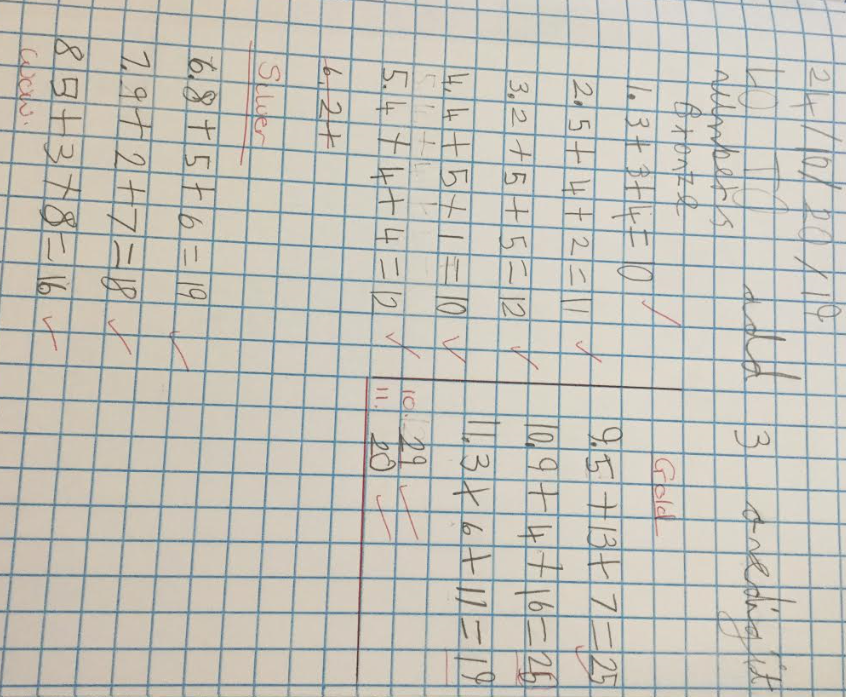 24/10/2019
LO TO add 3 onedigit
numbers
Bronze
1. 3+3+4=10 ✓
2. 5+4+2=11 ✓
3. 2+5+5=12 ✓
4. 4+5+1=10 ✓
5. 4+4+4=12 ✓
6. 2+
Silver
6. 8+5+6=19 ✓
7. 9+2+7=18 ✓
8 5+3+8=16 ✓
Gold
9. 5+13+7=25 ✓
10. 9+4+16=
11. 3+6+11=19
10. 29 ✓
11. 20 ✓